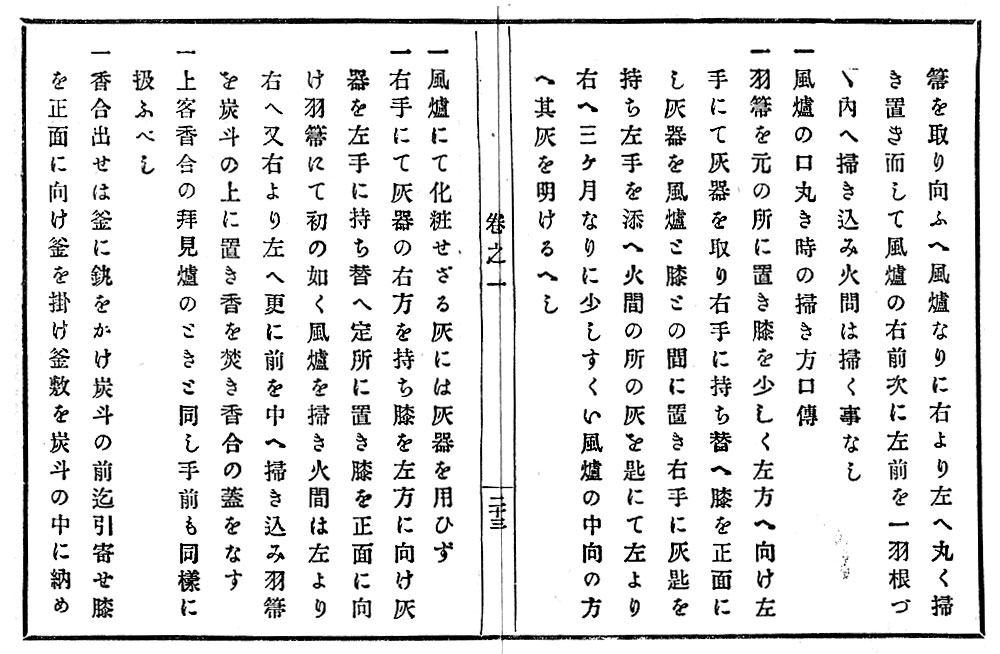 箒を取り向ふへ風爐なりに右より左へ丸く掃
き置き而して風爐の右前次に左前を一羽根づ
〵內へ掃き込み火間は掃く事なし
一風爐の口丸き時の掃き方口傳
一羽箒を元の所に置き膝を少しく左方へ向け左
手にて灰器を取り右手に持ち替へ膝を正面に
し灰器を風爐と膝との間に置き右手に灰匙を
持ち左手を添へ火間の所の灰を匙にて左より
右へ三ケ月なりに少しすくい風爐の中向の方
へ其灰を明けるへし
卷之一
二十三
一風爐にて化粧せざる灰には灰器を用ひず
一右手にて灰器の右方を持ち膝を左方に向け灰
器を左手に持ち替へ定所に置き膝を正面に向
け羽箒にて初の如く風爐を掃き火間は左より
右へ又右より左へ更に前を中へ掃き込み羽箒
を炭斗の上に置き香を焚き香合の蓋をなす
一上客香合の拜見爐のときと同し手前も同樣に
扱ふべし
一香合出せは釜に鐶をかけ炭斗の前迄引寄せ膝
を正面に向け釜を掛け釜敷を炭斗の中に納め